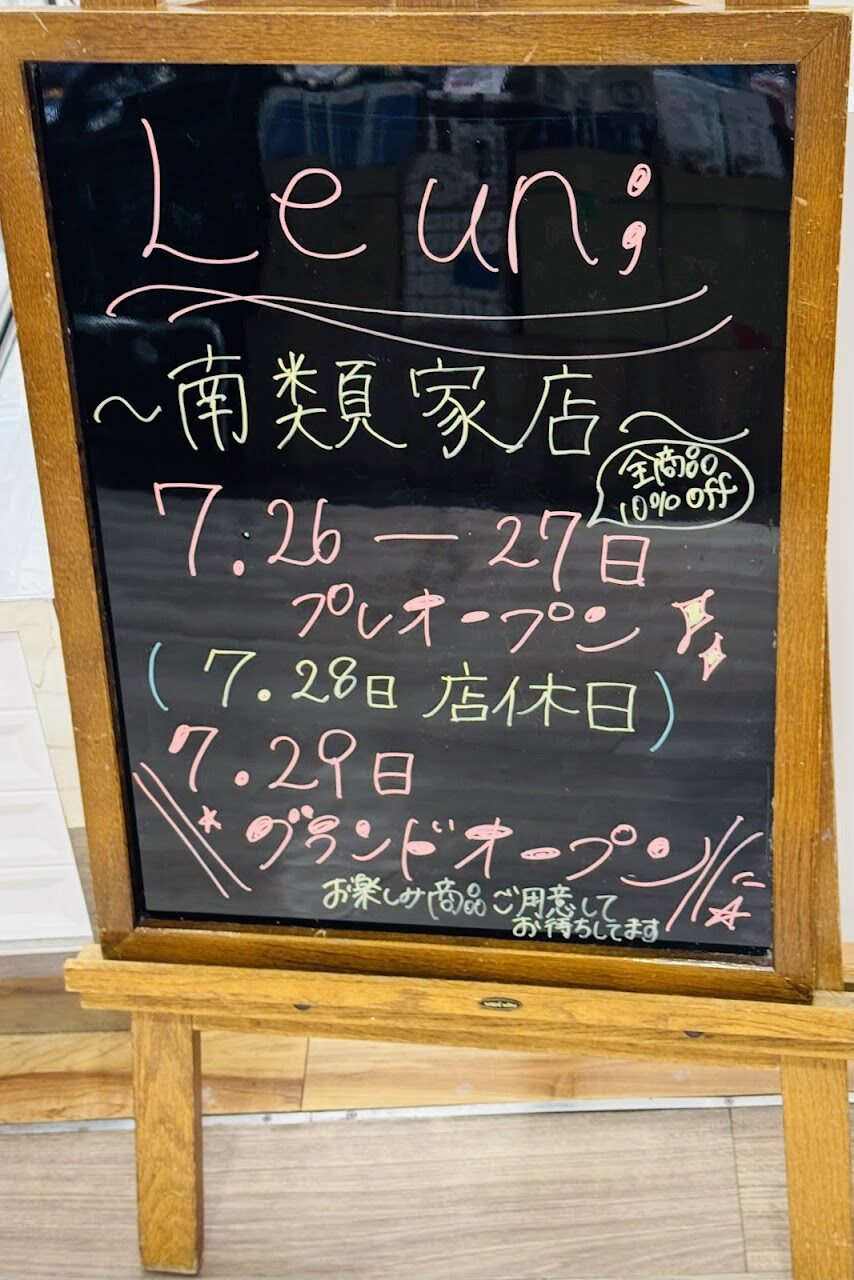 Le un;
～南類家店～
全商品
10% off
7.26 — 27日
プレオープン
( 7.28日 店休日 )
7.29日
グランドオープン
お楽しみ商品ご用意して
お待ちしてます